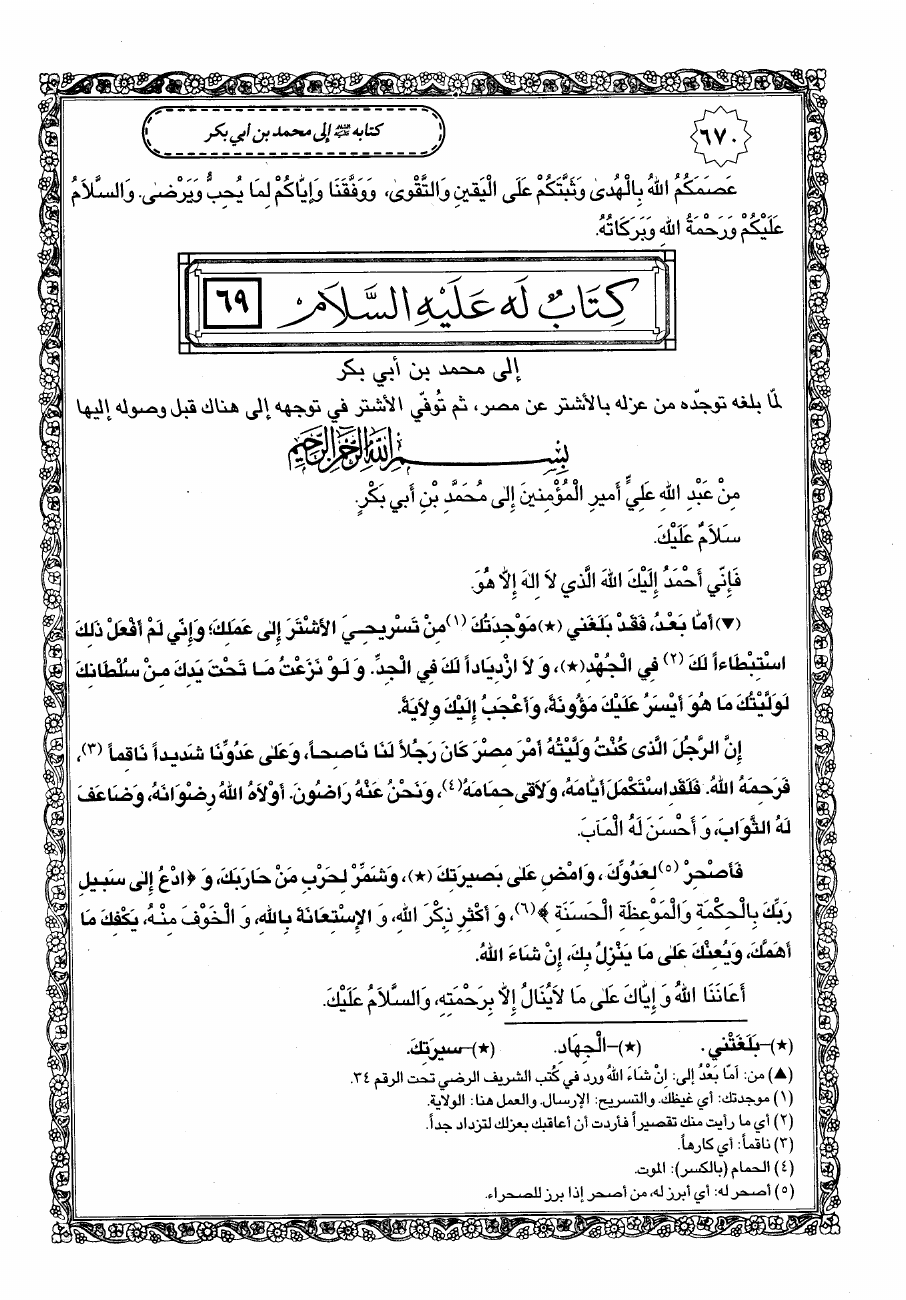 ٦٧٠
كتابه عليه السلام إلى محمد بن أبي بكر
عَصَمَكُمُ اللهُ بِالْهُدىٰ وَثَبَّتَكُمْ عَلَى الْيَقينِ وَالتَّقْوىٰ، وَوَفَّقَنَا وَإِيّاكُمْ لِمَا يُحِبُّ وَيَرْضىٰ. وَالسَّلاَمُ
عَلَيْكُمْ وَرَحْمَةُ اللهِ وَبَرَكَاتُهُ.
كِتَابٌ لَه عَلَيْهِ السَّلَام
٦٩
إلى محمد بن أبي بكر
لمّا بلغه توجّده من عزله بالأشتر عن مصر، ثم تُوفّي الأشتر في توجهه إلى هناك قبل وصوله إليها
بِسْمِ اللهِ الرَّحْمٰنِ الرَّحِيمِ
مِنْ عَبْدِ اللهِ عَلِيٍّ أَميرِ الْمُؤْمِنينَ إِلى مُحَمَّدِ بْنِ أَبي بَكْرٍ.
سَلاَمٌ عَلَيْكَ.
فَإِنّي أَحْمَدُ إِلَيْكَ اللهَ الَّذي لاَ اِلهَ إِلاّ هُوَ.
(▼) أَمَّا بَعْدُ، فَقَدْ بَلَغَني (★) مَوْجِدَتُكَ (١) مِنْ تَسْريحِيَ الأَشْتَرَ إِلى عَمَلِكَ؛ وَإِنّي لَمْ أَفْعَلْ ذلِكَ
اسْتِبْطَاءاً لَكَ (٢) فِي الْجُهْدِ (★)، وَ لاَ ازْدِيَاداً لَكَ فِي الْجِدِّ. وَ لَوْ نَزَعْتُ مَا تَحْتَ يَدِكَ مِنْ سُلْطَانِكَ
لَوَلَّيْتُكَ مَا هُوَ أَيْسَرُ عَلَيْكَ مَؤُونَةً، وَأَعْجَبُ إِلَيْكَ وِلاَيَةً.
إِنَّ الرَّجُلَ الَّذي كُنْتُ وَلَّيْتُهُ أَمْرَ مِصْرَ كَانَ رَجُلاً لَنَا نَاصِحاً، وَعَلى عَدُوِّنَا شَديداً نَاقِماً (٣)،
فَرَحِمَهُ اللهُ. فَلَقَدِ اسْتَكْمَلَ أَيَّامَهُ، وَلاَقى حِمَامَهُ (٤)، وَنَحْنُ عَنْهُ رَاضُونَ. أَوْلاَهُ اللهُ رِضْوَانَهُ، وَضَاعَفَ
لَهُ الثَّوَابَ، وَ أَحْسَنَ لَهُ الْمَآبَ.
فَأَصْحِرْ (٥) لِعَدُوِّكَ، وَامْضِ عَلى بَصيرَتِكَ (★)، وَشَمِّرْ لِحَرْبِ مَنْ حَارَبَكَ، وَ ﴿ادْعُ إِلى سَبيلِ
رَبِّكَ بِالْحِكْمَةِ وَالْمَوْعِظَةِ الْحَسَنَةِ﴾ (٦)، وَ أَكْثِرِ ذِكْرَ اللهِ، وَ الإِسْتِعَانَةَ بِاللهِ، وَ الْخَوْفَ مِنْهُ، يَكْفِكَ مَا
أَهَمَّكَ، وَيُعِنْكَ عَلى مَا يَنْزِلُ بِكَ، إِنْ شَاءَ اللهُ.
أَعَانَنَا اللهُ وَ إِيّاكَ عَلى مَا لاَيُنَالُ إِلاّ بِرَحْمَتِهِ، وَالسَّلاَمُ عَلَيْكَ.
(★)-بَلَغَتْني. (★)-الْجِهَادِ. (★)-سيرَتِكَ.
(▲) من: أَمّا بَعْدُ إلى: إنْ شَاءَ اللهُ ورد في كتب الشريف الرضي تحت الرقم ٣٤.
(١) موجدتك: أي غيظك. والتسريح: الإرسال. والعمل هنا: الولاية.
(٢) أي ما رأيت منك تقصيراً فأردت أن أعاقبك بعزلك لتزداد جداً.
(٣) ناقماً: أي كارهاً.
(٤) الحمام (بالكسر): الموت.
(٥) أصحر له: أي أبرز له، من أصحر إذا برز للصحراء.